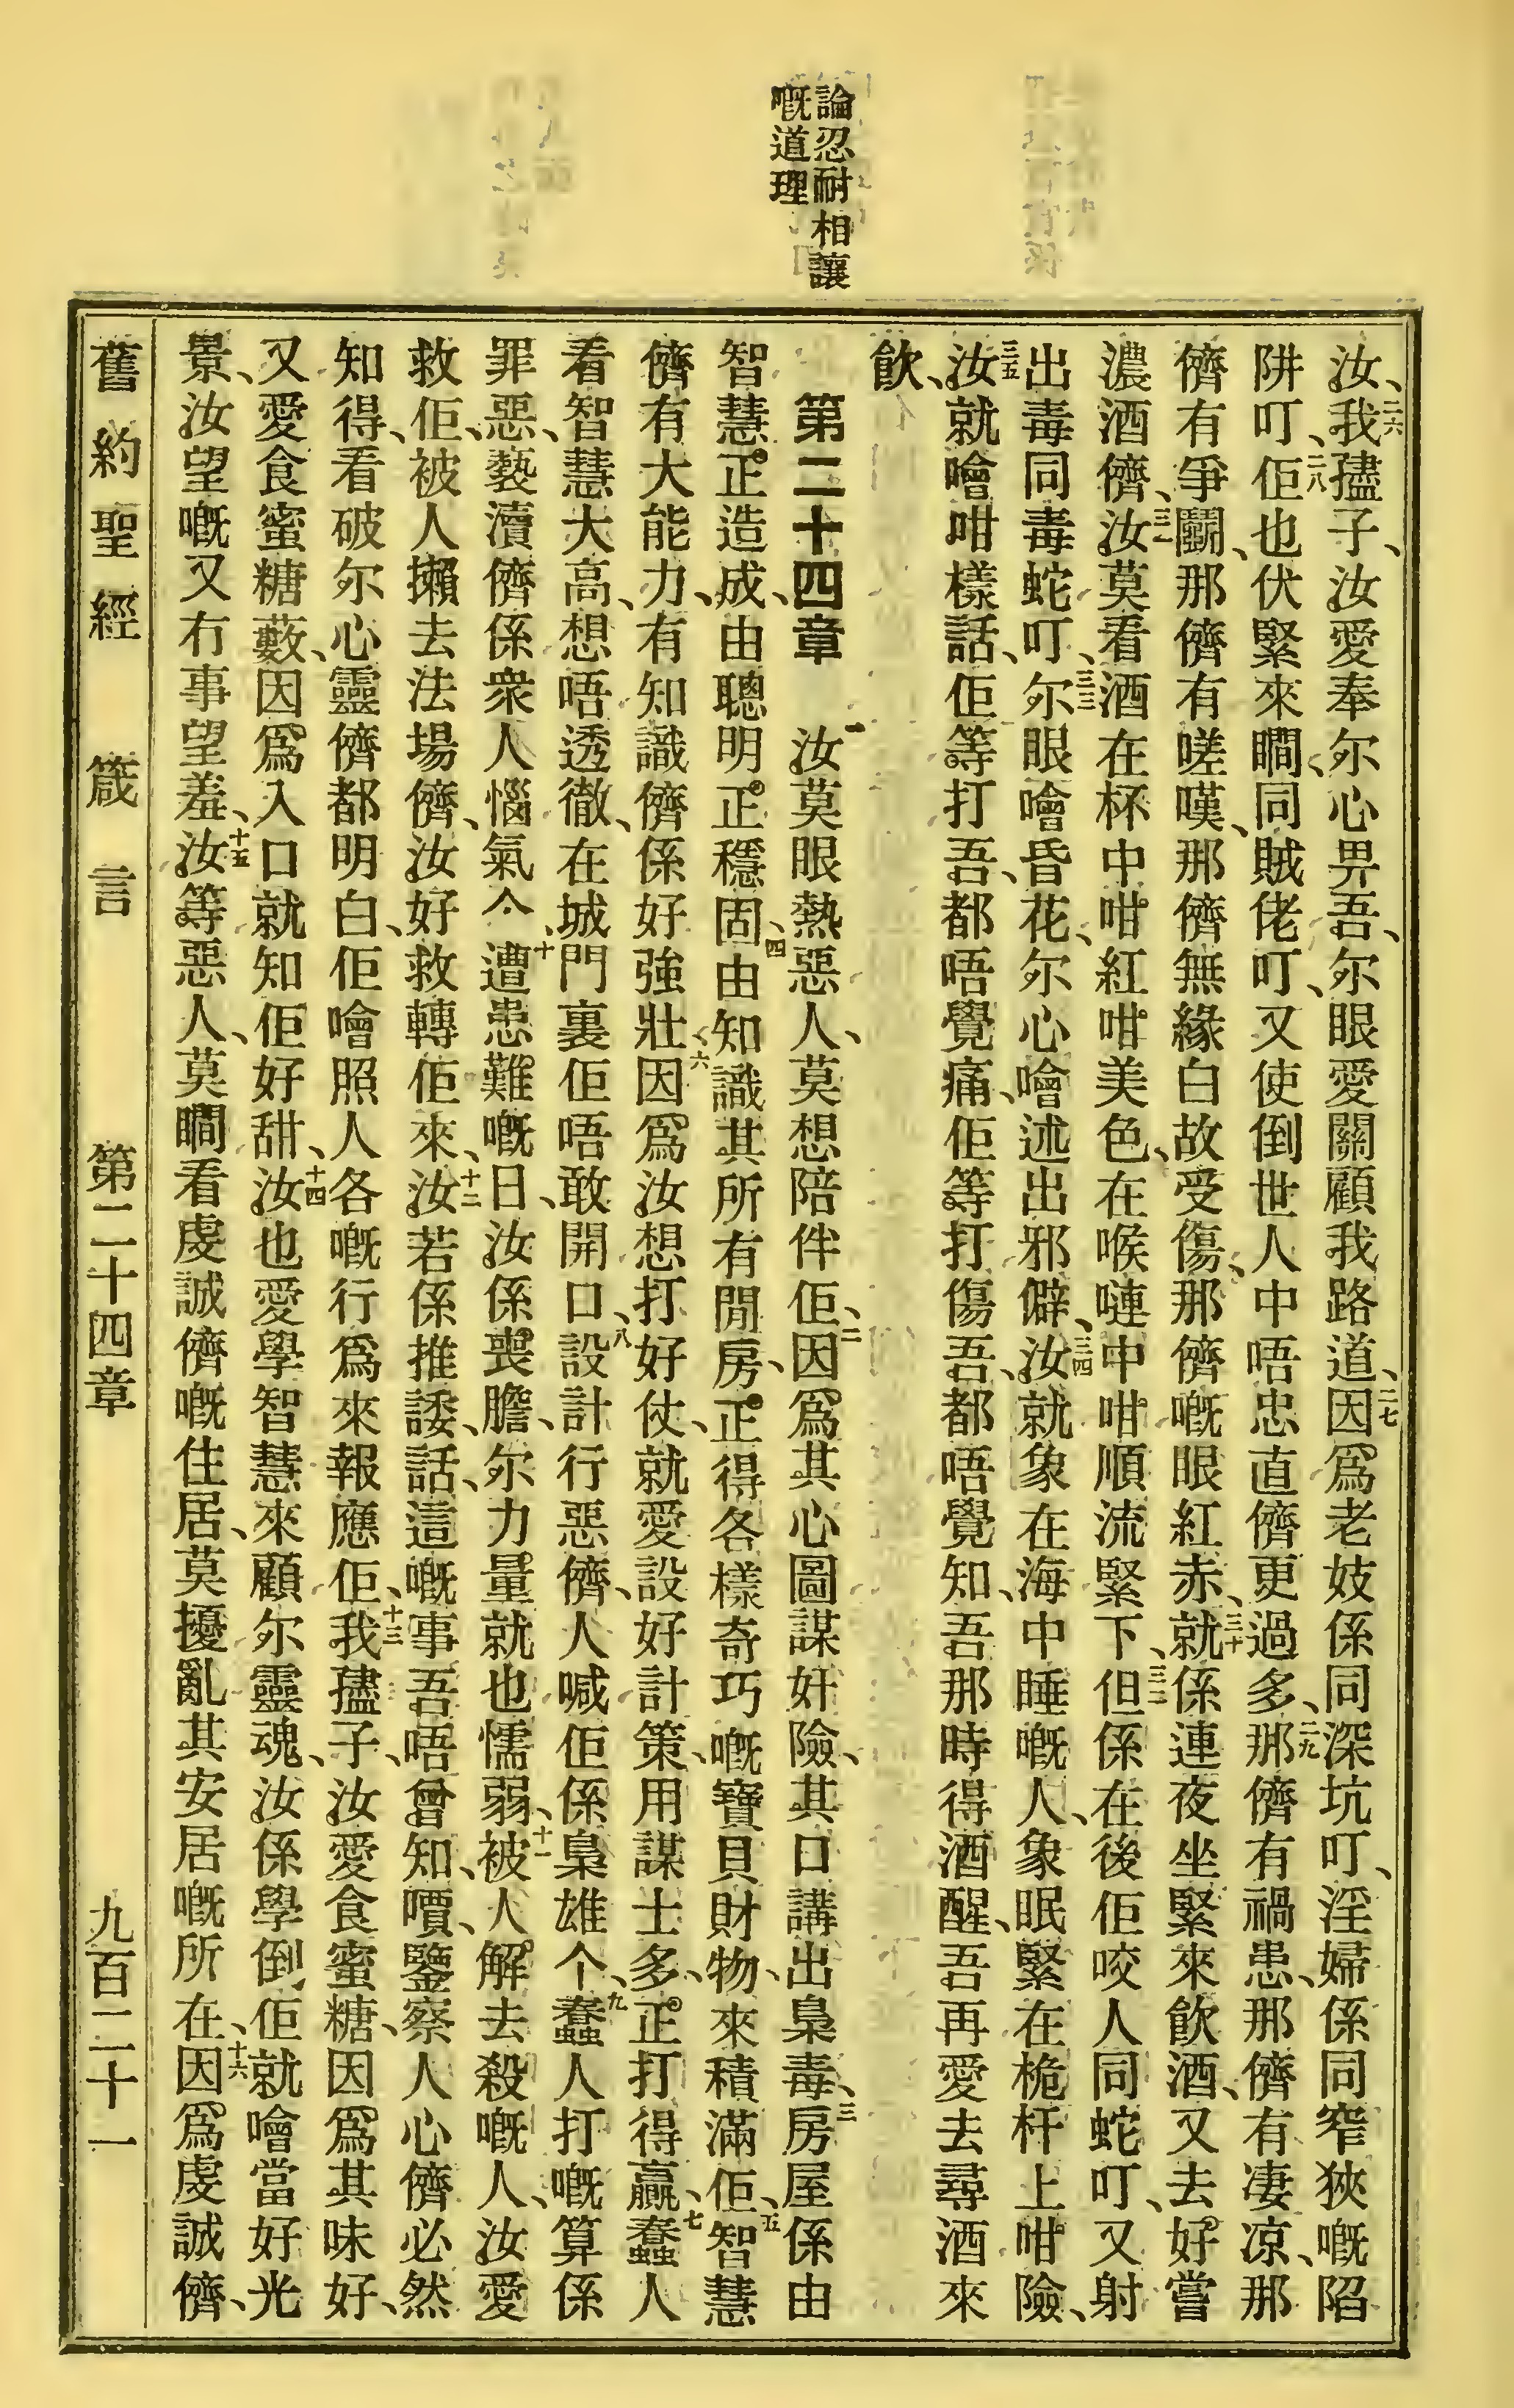 論忍耐相讓
嘅道理
汝、二六我孻子、汝愛奉尔心畀吾、尔眼愛關顧我路道、二七因爲老妓係同深坑叮、淫婦係同窄狹嘅陷
阱叮、二八佢也伏緊來瞷、同賊佬叮、又使倒世人中唔忠直儕更過多、二九那儕有禍患、那儕有凄凉、那
儕有爭鬭、那儕有嗟嘆、那儕無緣白故受傷、那儕嘅眼紅赤、三十就係連夜坐緊來飲酒、又去好嘗
濃酒儕、三一汝莫看酒在杯中咁紅咁美色、在喉嗹中咁順流緊下、三二但係在後佢咬人同蛇叮、又射
出毒同毒蛇叮、三三尔眼噲昏花、尔心噲述出邪僻、三四汝就象在海中睡嘅人、象眠緊在桅杆上咁險、
三五汝就噲咁樣話、佢等打吾、都唔覺痛、佢等打傷吾、都唔覺知、吾那時得酒醒、吾再愛去尋酒來
飲、
第二十四章　一汝莫眼熱惡人、莫想陪伴佢、二因爲其心圖謀奸險、其口講出梟毒、三房屋係由
智慧正造成、由聰明正穩固、四由知識其所有閒房、正得各樣奇巧嘅寶貝財物、來積滿佢、五智慧
儕有大能力、有知識儕係好強壯、六因爲汝想打好仗、就愛設好計策、用謀士多、正打得贏、七蠢人
看智慧大高、想唔透徹、在城門裏佢唔敢開口、八設計行惡儕、人喊佢係梟雄个、九蠢人打嘅算係
罪惡、褻瀆儕係衆人惱氣个、十遭患難嘅日、汝係喪膽、尔力量就也懦弱、十一被人解去殺嘅人、汝愛
救佢、被人攋去法場儕、汝好救轉佢來、十二汝若係推諉、話、這嘅事吾唔曾知、嘪、鑒察人心儕必然
知得、看破尔心靈儕都明白、佢噲照人各嘅行爲來報應佢、十三我孻子、汝愛食蜜糖、因爲其味好、
又愛食蜜糖藪、因爲入口就知佢好甜、十四汝也愛學智慧來顧尔靈魂、汝係學倒佢就噲當好光
景、汝望嘅又冇事望羞、十五汝等惡人、莫瞷看虔誠儕嘅住居、莫擾亂其安居嘅所在、十六因爲虔誠儕、
舊約聖經　箴言　第二十四章　九百二十一